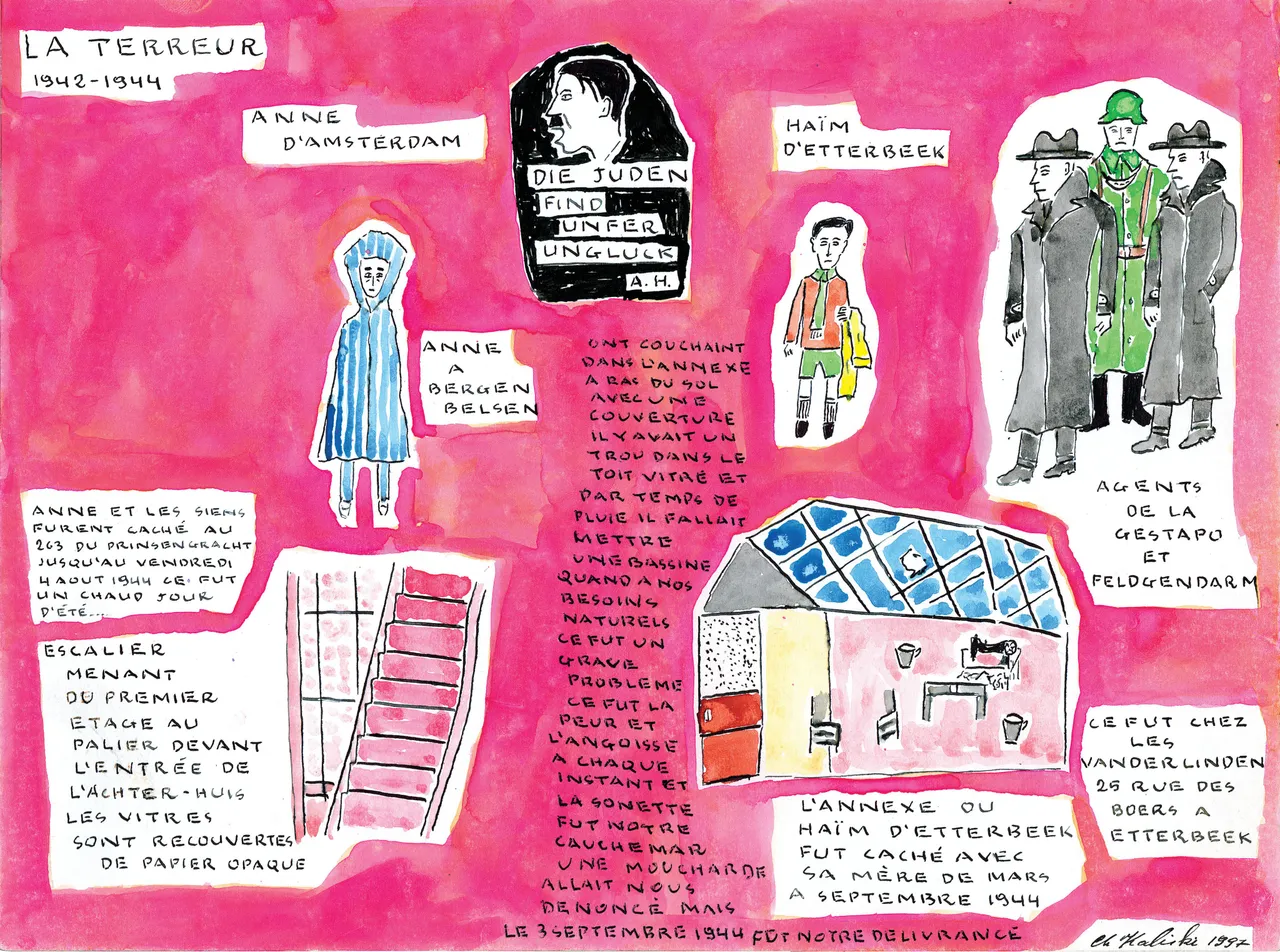 LA TERREUR
1942-1944
ANNE
D'AMSTERDAM
DIE JUDEN
FIND
UNFER
UNGLUCK
A.H.
HAÏM
D'ETTERBEEK
ANNE
A
BERGEN
BELSEN
AGENTS
DE LA
GESTAPO
ET
FELDGENDARM
ANNE ET LES SIENS
FURENT CACHÉ AU
263 DU PRINSENGRACHT
JUSQU'AU VENDREDI
4 AOUT 1944 CE FUT
UN CHAUD JOUR
D'ÉTÉ....
ESCALIER
MENANT
DU PREMIER
ETAGE AU
PALIER DEVANT
L'ENTRÉE DE
L'ACHTER-HUIS
LES VITRES
SONT RECOUVERTES
DE PAPIER OPAQUE
ONT COUCHAINT
DANS L'ANNEXE
A RAS DU SOL
AVEC UNE
COUVERTURE
IL Y AVAIT UN
TROU DANS LE
TOIT VITRÉ ET
PAR TEMPS DE
PLUIE IL FALLAIT
METTRE
UNE BASSINE
QUAND A NOS
BESOINS
NATURELS
CE FUT UN
GRAVE
PROBLEME
CE FUT LA
PEUR ET
L'ANGOISSE
A CHAQUE
INSTANT ET
LA SONETTE
FUT NOTRE
CAUCHEMAR
UNE MOUCHARDE
ALLAIT NOUS
DENONCÉ MAIS
LE 3 SEPTEMBRE 1944 FUT NOTRE DELIVRANCE
L'ANNEXE OU
HAÏM D'ETTERBEEK
FUT CACHÉ AVEC
SA MÈRE DE MARS
A SEPTEMBRE 1944
CE FUT CHEZ
LES
VANDERLINDEN
25 RUE DES
BOERS A
ETTERBEEK
Ch Kaliski 1997